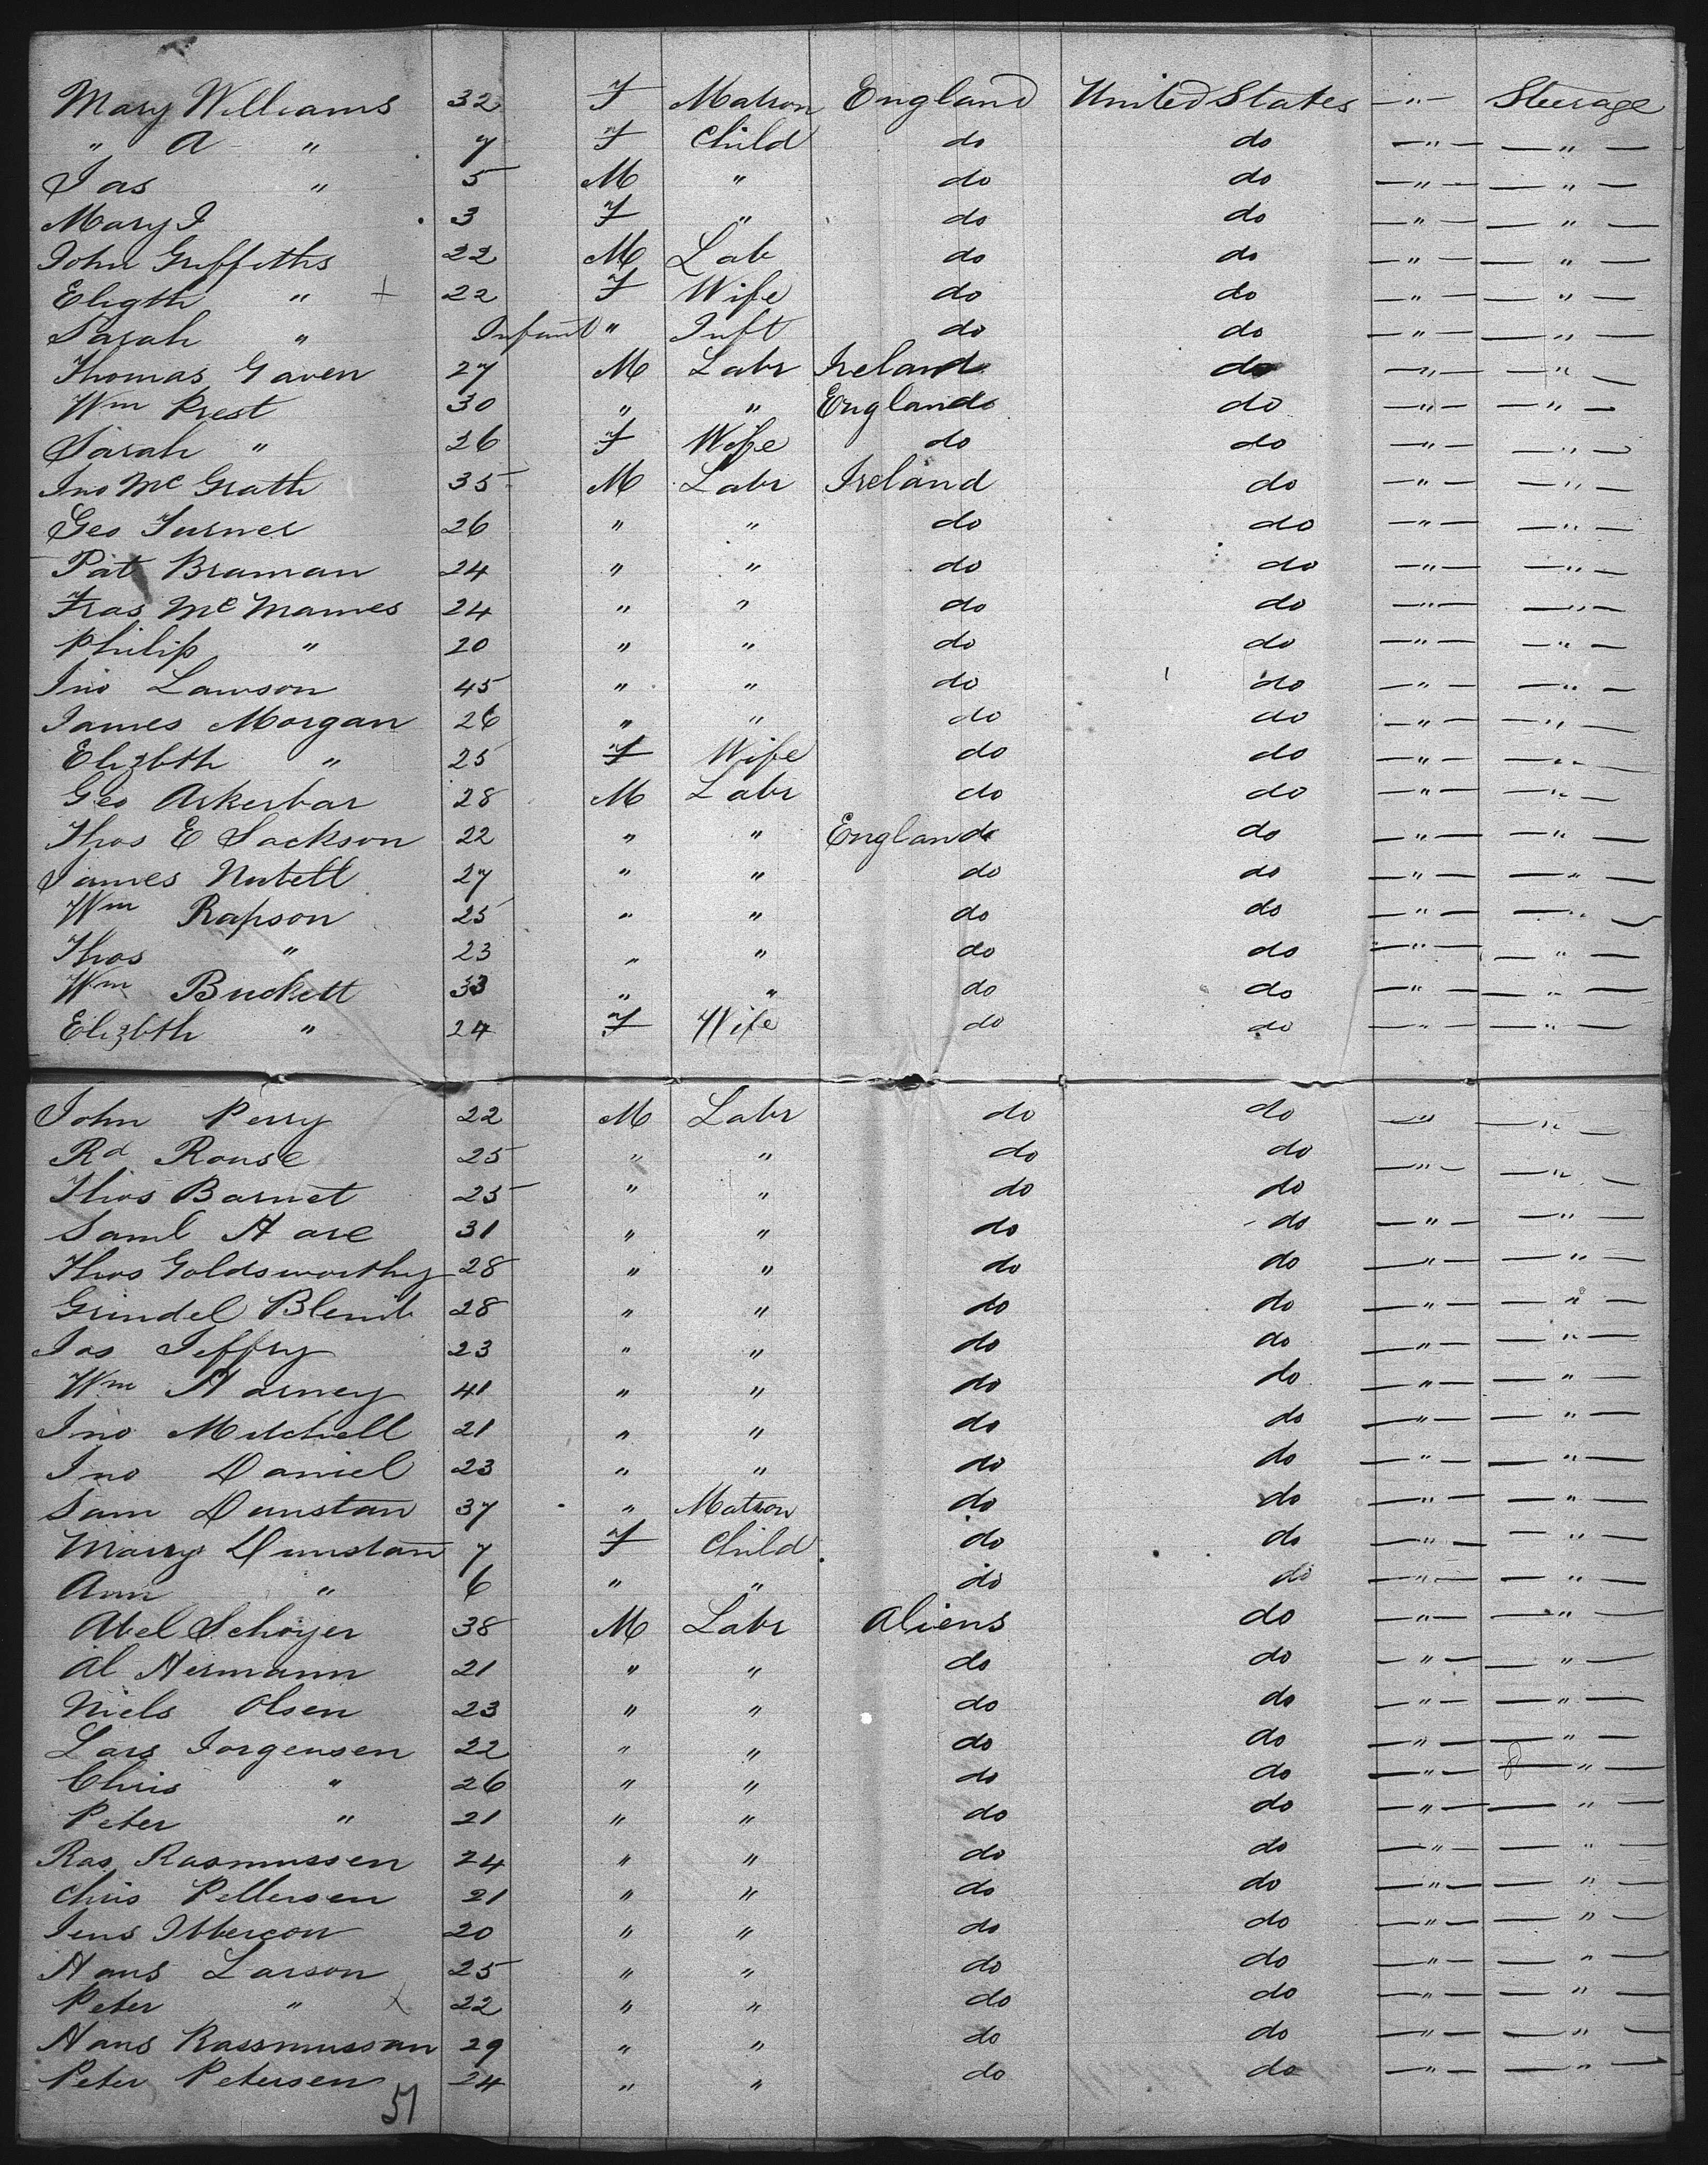 Mary Williams 32 F Matron England United States —"— Steerage
" A " 7 F Child do do —"— —"—
Jas " 5 M " do do —"— —"—
Mary J 3 F " do do —"— —"—
John Griffeths 22 M Lab do do —"— —"—
Eligth " + 22 F Wife do do —"— —"—
Sarah " Infant " Inft do do —"— —"—
Thomas Gaven 27 M Labr Ireland do —"— —"—
Wm Prest 30 " " England do —"— —"—
Sarah " 26 F Wife do do —"— —"—
Jno Mc Grath 35 M Labr Ireland do —"— —"—
Geo Turner 26 " " do do —"— —"—
Pat Braman 24 " " do do —"— —"—
Fras Mc Mames 24 " " do do —"— —"—
Philip " 20 " " do do —"— —"—
Jno Lawson 45 " " do do —"— —"—
James Morgan 26 " " do do —"— —"—
Elizbth " 25 F Wife do do —"— —"—
Geo Arkerbar 28 M Labr do do —"— —"—
Thos E Jackson 22 " " England do —"— —"—
James Nutell 27 " " do do —"— —"—
Wm Rapson 25 " " do do —"— —"—
Thos " 23 " " do do —"— —"—
Wm Buckett 33 " " do do —"— —"—
Elizbth " 24 F Wife do do —"— —"—
John Perry 22 M Labr do do —"— —"—
Rd Rouse 25 " " do do —"— —"—
Thos Barnet 25 " " do do —"— —"—
Saml Hare 31 " " do do —"— —"—
Thos Goldsworthy 28 " " do do —"— —"—
Grindel Blemt 28 " " do do —"— —"—
Jas Jeffry 23 " " do do —"— —"—
Wm Harney 41 " " do do —"— —"—
Jno Mitchell 21 " " do do —"— —"—
Jno Daniel 23 " " do do —"— —"—
Sam Dunstan 37 " Matron do do —"— —"—
Mary Dunstan 7 F Child do do —"— —"—
Ann " 6 " " do do —"— —"—
Abel Schoyer 38 M Labr Aliens do —"— —"—
Al Hermann 21 " " do do —"— —"—
Niels Olsen 23 " " do do —"— —"—
Lars Jorgensen 22 " " do do —"— —"—
Chris " 26 " " do do —"— —"—
Peter " 21 " " do do —"— —"—
Ras Rasmussen 24 " " do do —"— —"—
Chris Pellersen 21 " " do do —"— —"—
Jens Ibbercon 20 " " do do —"— —"—
Hans Larson 25 " " do do —"— —"—
Peter " x 22 " " do do —"— —"—
Hans Rassmussan 29 " " do do —"— —"—
Peter Petersen 24 " " do do —"— —"—
51